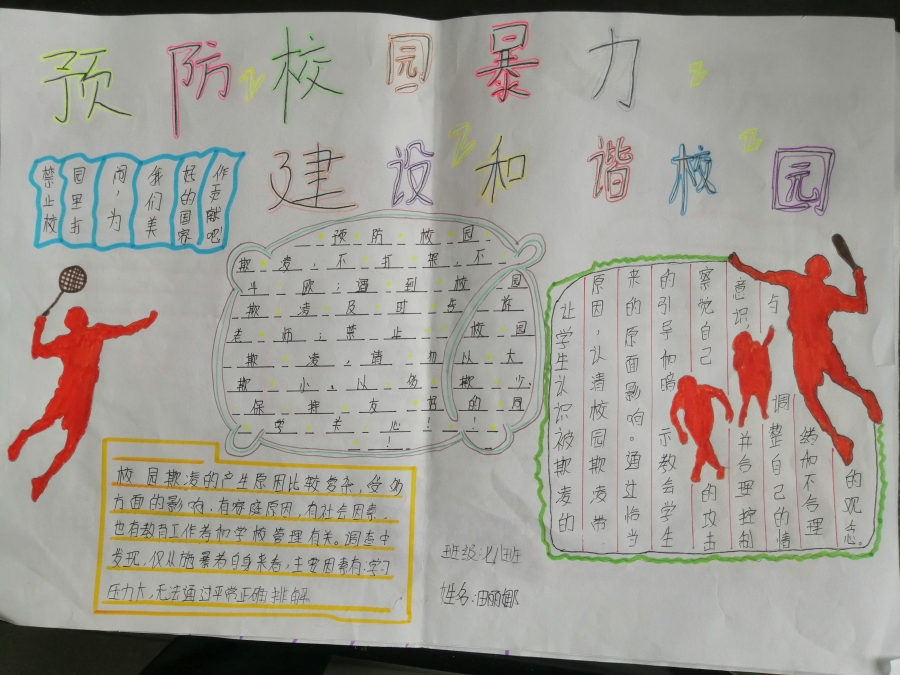 预防校园暴力
建设和谐校园
禁止校
园里打
闹，为
我们美
好的国家
作贡献吧！
预防校园
欺凌，不打架，不
斗殴；遇到校园
欺凌及时告诉
老师；禁止校园
欺凌，请勿以大
欺小，以多欺少，
保持友好的同
学关心！！
！
让学生认识被欺凌的
原因，认清校园欺凌带
来的原面影响。通过恰当
的引导和暗示教会学生
察觉自己的攻击
意识，并合理控制
与调整自己的情
绪和不合理
的观念。
校园欺凌的产生原因比较复杂，受多
方面的影响，有家庭原因，有社会因素，
也有教育工作者和学校管理有关。调查中
发现，仅从施暴者自身来看，主要因素有：学习
压力大，无法通过平常正确排解
班级：七八班
姓名：田丽娜